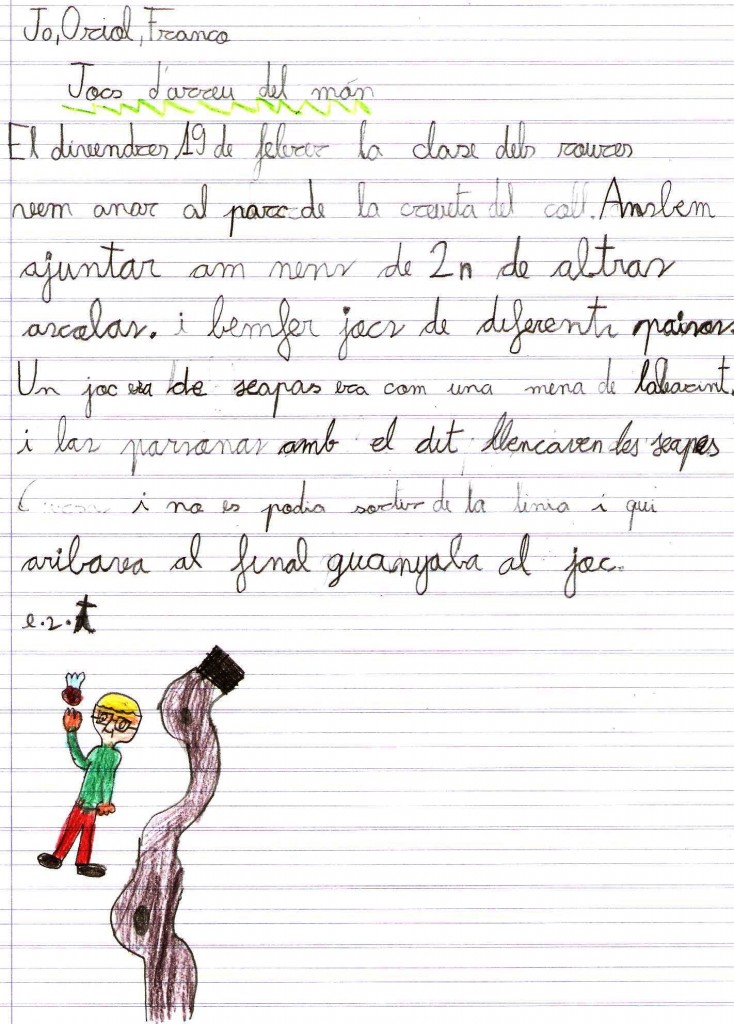 Jo, Oriol, Franco
Jocs d'arreu del món
El divendres 19 de febrer la clase dels roures
vem anar al parc de la creueta del coll. Ansbem
ajuntar am nens de 2n de altras
ascolas. i bemfer jocs de diferents paisos.
Un joc era de seapas era com una mena de labarint.
i las parsonas amb el dit llencaven les seapes
i no es podia sortir de la linia i qui
aribarea al final guanyaba al joc.